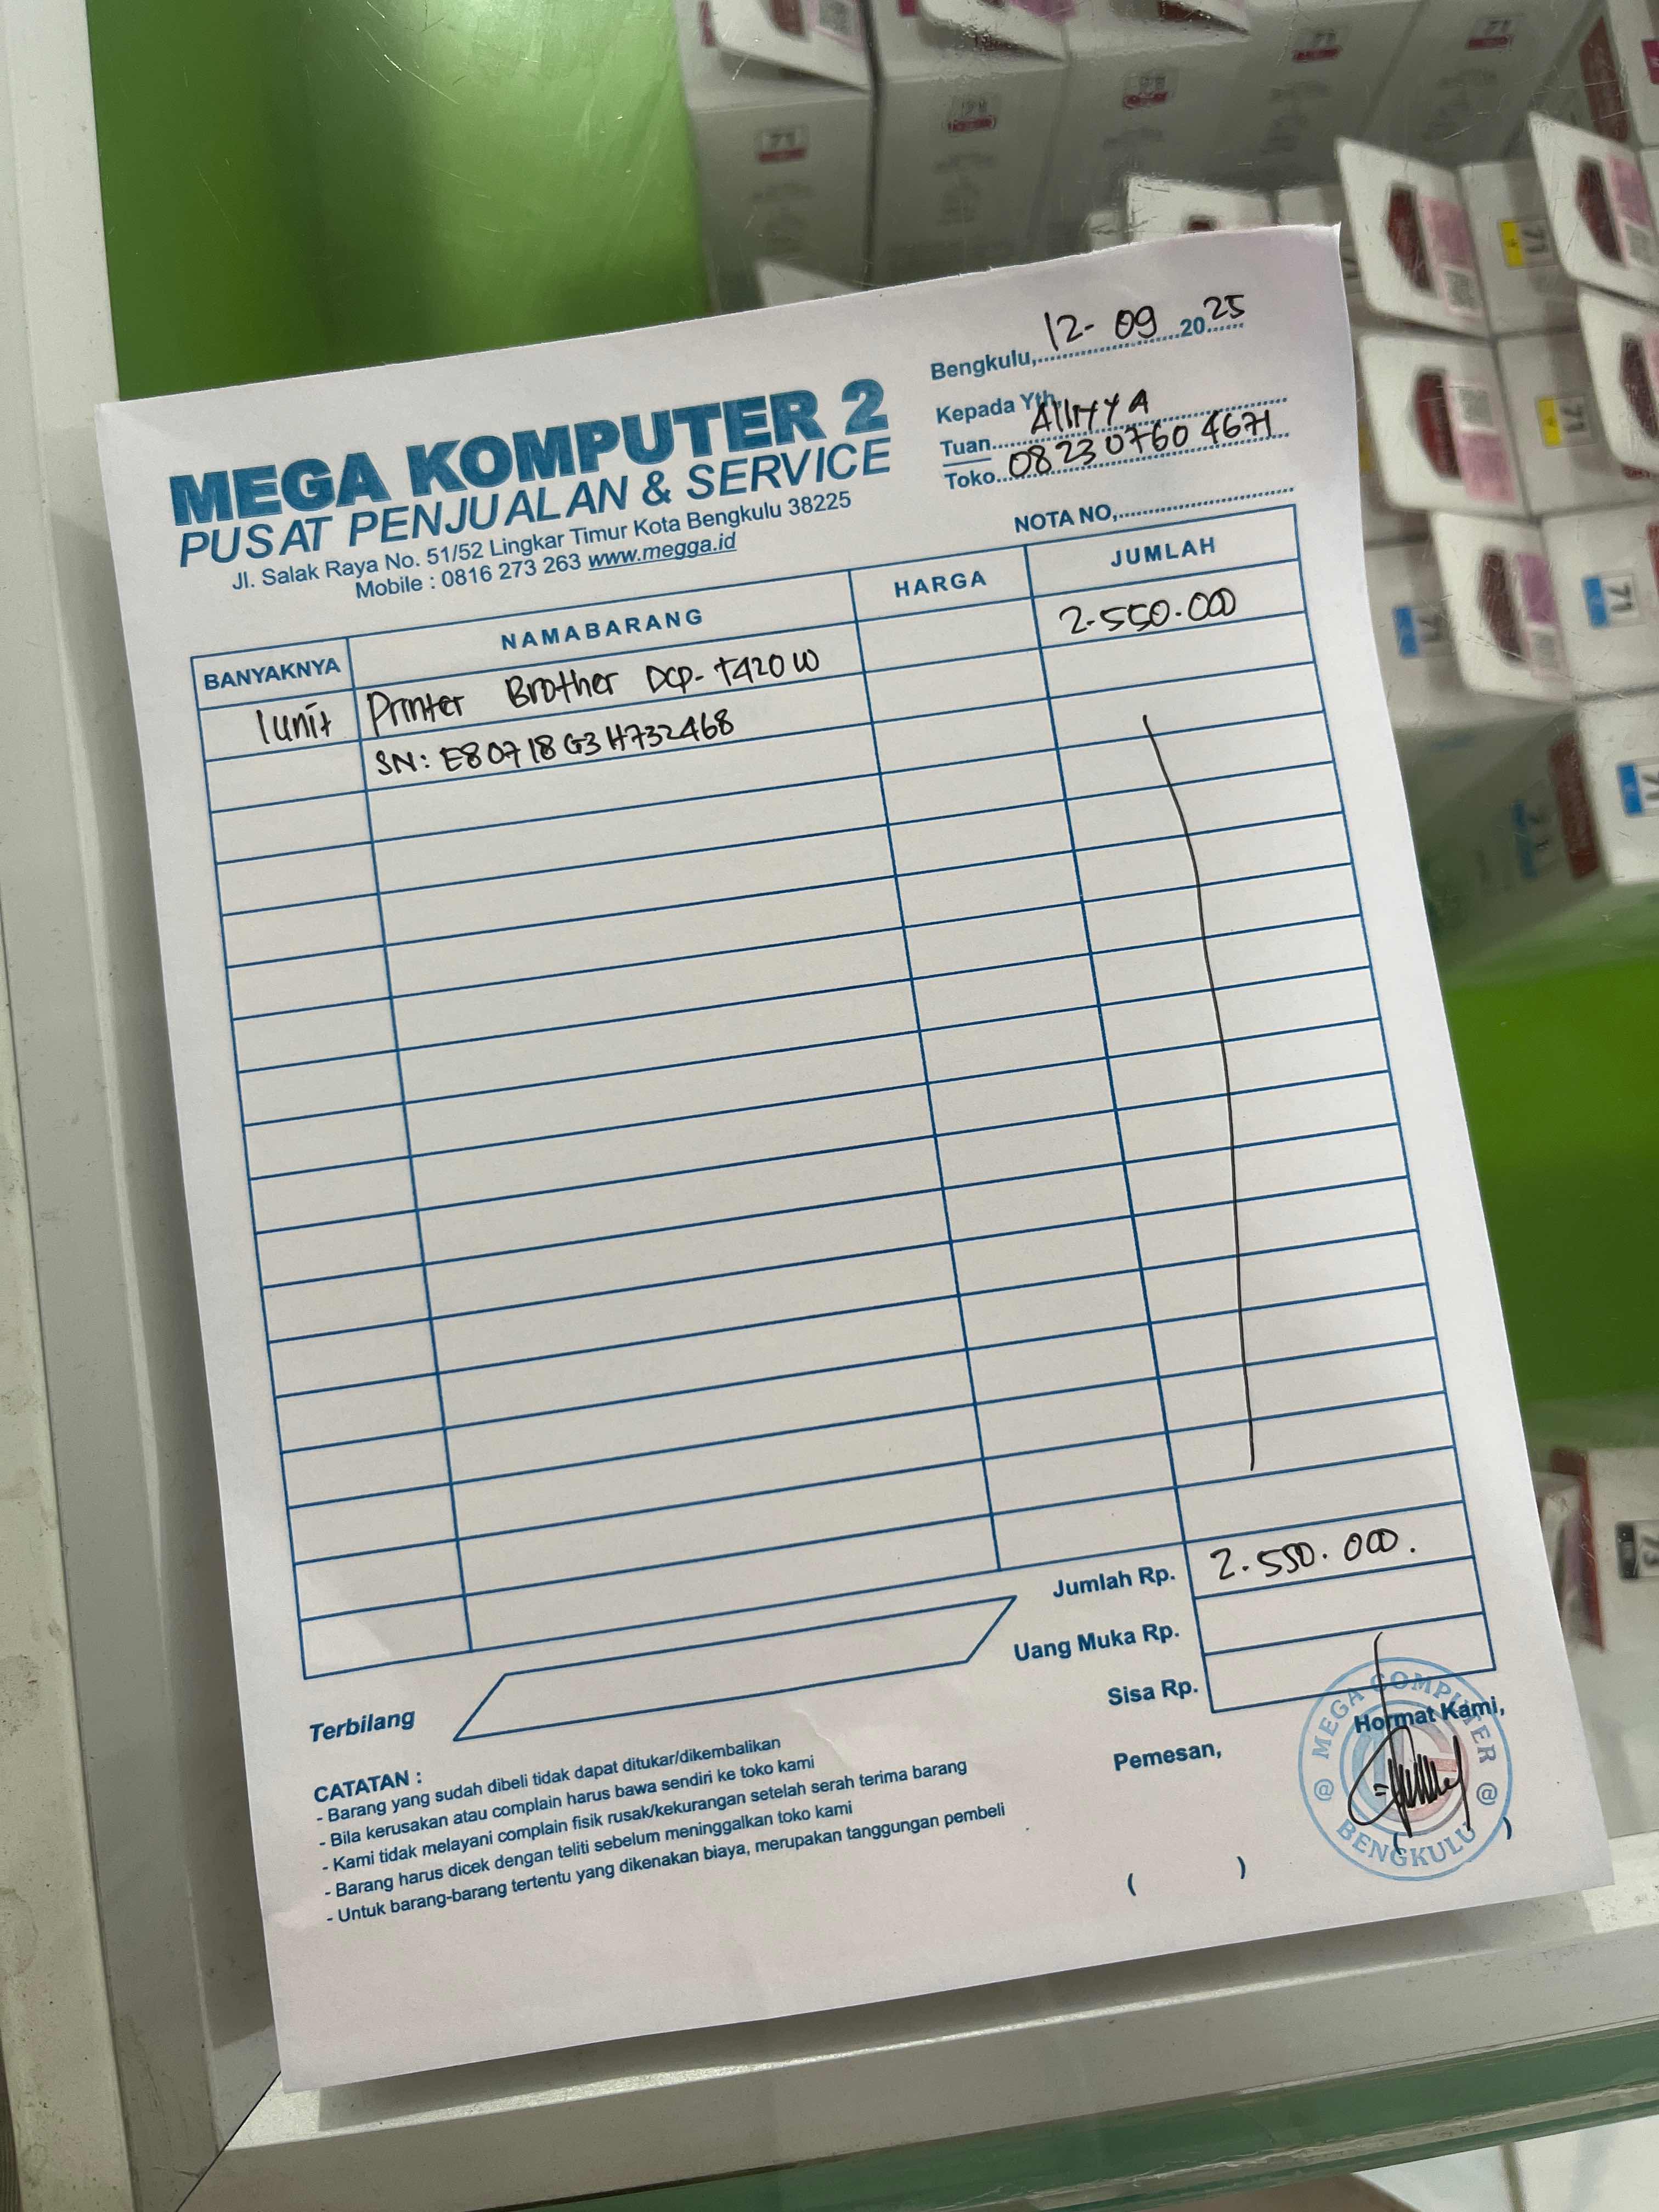 Bengkulu, 12-09 2025
Kepada Yth,
Tuan
Toko 082307604671
MEGA KOMPUTER 2
PUSAT PENJUALAN & SERVICE
Jl. Salak Raya No. 51/52 Lingkar Timur Kota Bengkulu 38225
Mobile : 0816 273 263 www.megga.id
NOTA NO,
BANYAKNYA NAMABARANG HARGA JUMLAH
1 unit Printer Brother DCP-T420W 2.550.000
SN: E80718G3H732468
Jumlah Rp. 2.550.000.
Uang Muka Rp.
Sisa Rp.
Terbilang
CATATAN :
- Barang yang sudah dibeli tidak dapat ditukar/dikembalikan
- Bila kerusakan atau complain harus bawa sendiri ke toko kami
- Kami tidak melayani complain fisik rusak/kekurangan setelah serah terima barang
- Barang harus dicek dengan teliti sebelum meninggalkan toko kami
- Untuk barang-barang tertentu yang dikenakan biaya, merupakan tanggungan pembeli
Pemesan,
( )
Hormat Kami,
( )
@ MEGA COMPUTER @
BENGKULU
71
71
71
71
71
71